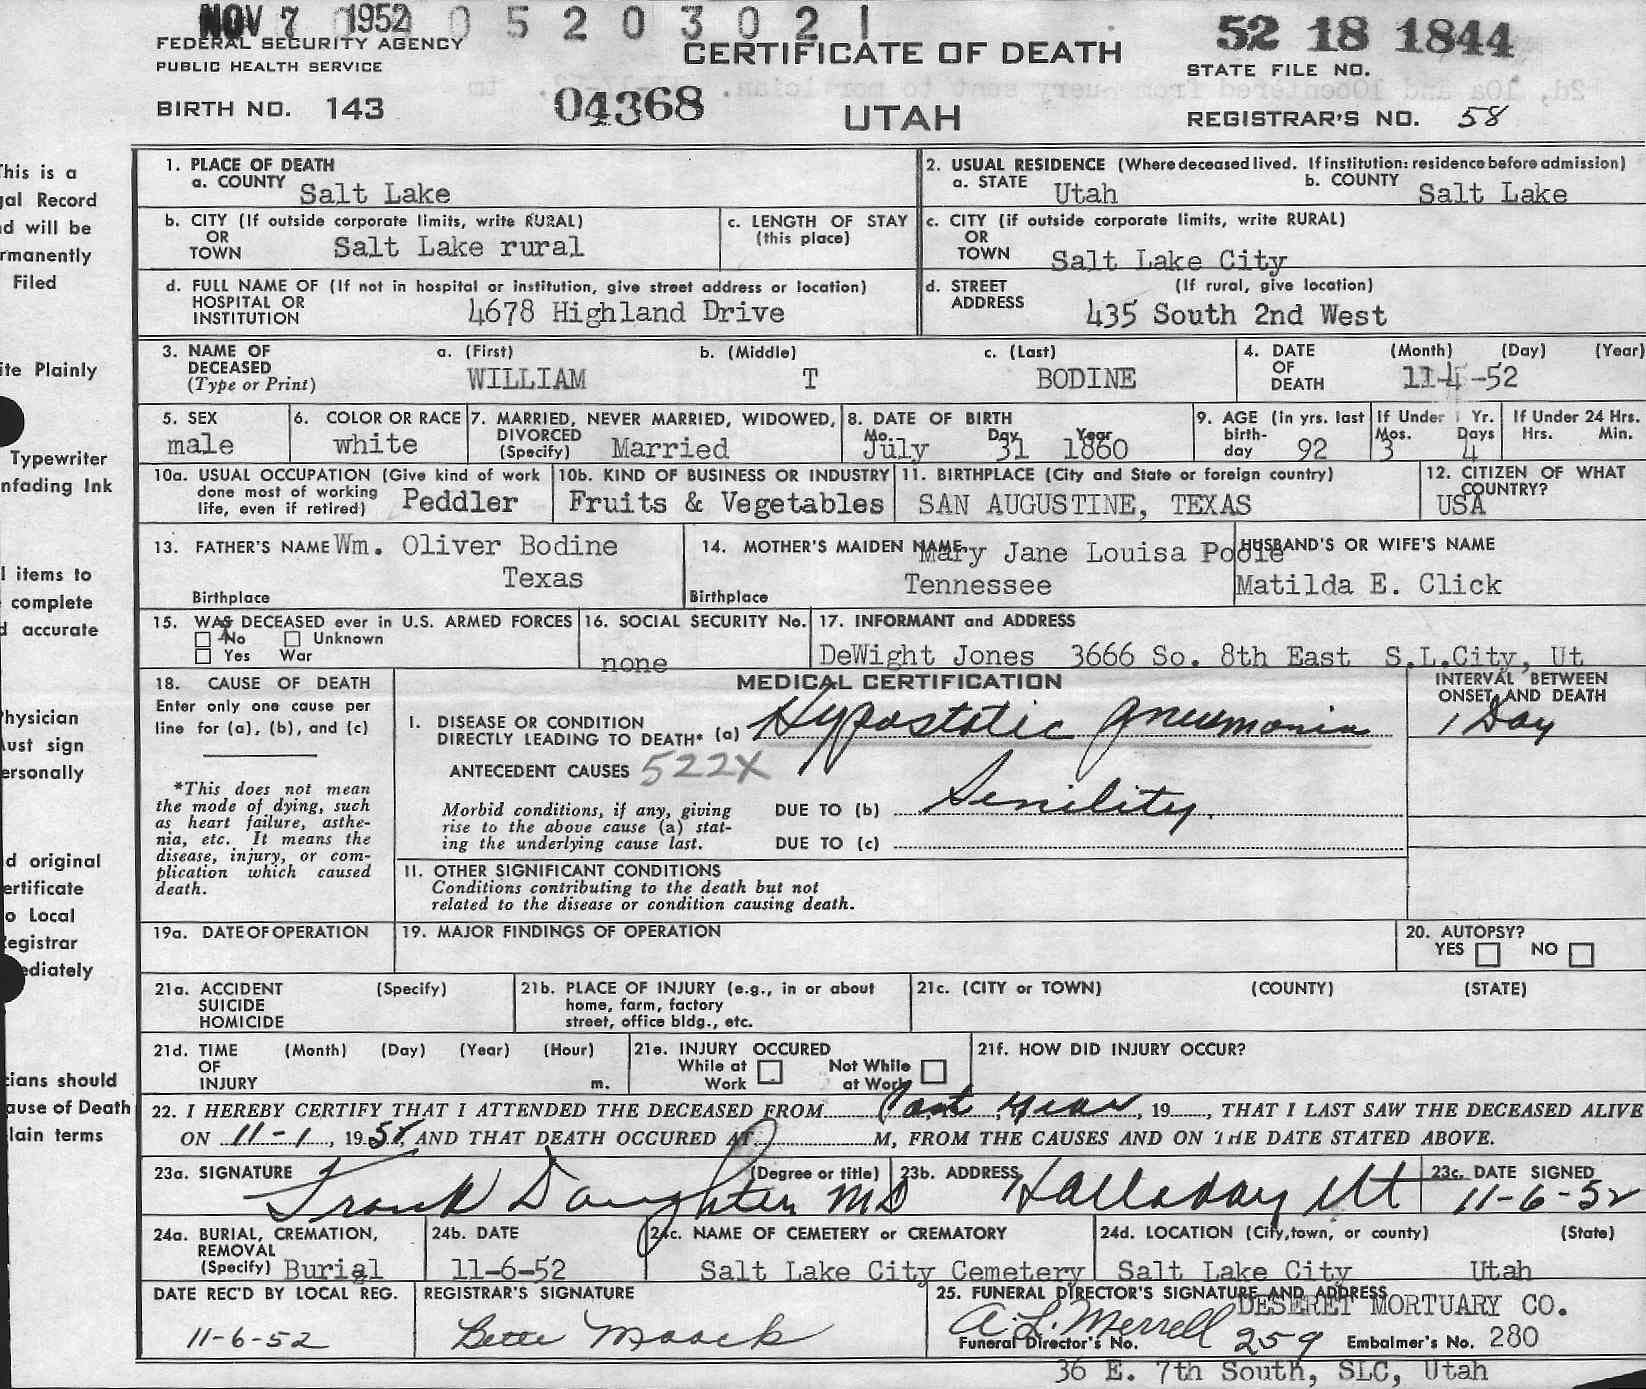 NOV 7 1952 0 5 2 0 3 0 2 1
52 18 1844
FEDERAL SECURITY AGENCY
PUBLIC HEALTH SERVICE
CERTIFICATE OF DEATH
STATE FILE NO.
BIRTH NO. 143
04368
UTAH
REGISTRAR'S NO. 58
1. PLACE OF DEATH
a. COUNTY Salt Lake
2. USUAL RESIDENCE (Where deceased lived. If institution: residence before admission)
a. STATE Utah b. COUNTY Salt Lake
b. CITY (If outside corporate limits, write RURAL)
OR
TOWN Salt Lake rural
c. LENGTH OF STAY
(this place)
c. CITY (if outside corporate limits, write RURAL)
OR
TOWN Salt Lake City
d. FULL NAME OF (If not in hospital or institution, give street address or location)
HOSPITAL OR
INSTITUTION 4678 Highland Drive
d. STREET (If rural, give location)
ADDRESS 435 South 2nd West
3. NAME OF DECEASED
(Type or Print)
a. (First) WILLIAM
b. (Middle) T
c. (Last) BODINE
4. DATE OF DEATH
(Month) (Day) (Year)
11-4-52
5. SEX
male
6. COLOR OR RACE
white
7. MARRIED, NEVER MARRIED, WIDOWED,
DIVORCED
(Specify) Married
8. DATE OF BIRTH
Mo. Day Year
July 31 1860
9. AGE (in yrs. last
birth-
day 92
If Under 1 Yr.
Mos. Days
3 4
If Under 24 Hrs.
Hrs. Min.
10a. USUAL OCCUPATION (Give kind of work
done most of working
life, even if retired) Peddler
10b. KIND OF BUSINESS OR INDUSTRY
Fruits & Vegetables
11. BIRTHPLACE (City and State or foreign country)
SAN AUGUSTINE, TEXAS
12. CITIZEN OF WHAT
COUNTRY?
USA
13. FATHER'S NAME Wm. Oliver Bodine
Texas
Birthplace
14. MOTHER'S MAIDEN NAME Mary Jane Louisa Poole
Tennessee
Birthplace
HUSBAND'S OR WIFE'S NAME
Matilda E. Click
15. WAS DECEASED ever in U.S. ARMED FORCES
No Unknown
Yes War
16. SOCIAL SECURITY No.
none
17. INFORMANT and ADDRESS
DeWight Jones 3666 So. 8th East S.L.City, Ut
18. CAUSE OF DEATH
Enter only one cause per
line for (a), (b), and (c)
*This does not mean
the mode of dying, such
as heart failure, asthe-
nia, etc. It means the
disease, injury, or com-
plication which caused
death.
MEDICAL CERTIFICATION
INTERVAL BETWEEN
ONSET AND DEATH
I. DISEASE OR CONDITION
DIRECTLY LEADING TO DEATH* (a) Hypostatic pneumonia
1 Day
ANTECEDENT CAUSES 522X
Morbid conditions, if any, giving
rise to the above cause (a) stat-
ing the underlying cause last.
DUE TO (b) Senility.
DUE TO (c)
II. OTHER SIGNIFICANT CONDITIONS
Conditions contributing to the death but not
related to the disease or condition causing death.
19a. DATE OF OPERATION
19. MAJOR FINDINGS OF OPERATION
20. AUTOPSY?
YES NO
21a. ACCIDENT (Specify)
SUICIDE
HOMICIDE
21b. PLACE OF INJURY (e.g., in or about
home, farm, factory
street, office bldg., etc.
21c. (CITY or TOWN) (COUNTY) (STATE)
21d. TIME (Month) (Day) (Year) (Hour)
OF
INJURY m.
21e. INJURY OCCURED
While at Work Not While at Work
21f. HOW DID INJURY OCCUR?
22. I HEREBY CERTIFY THAT I ATTENDED THE DECEASED FROM Past year, 19, THAT I LAST SAW THE DECEASED ALIVE
ON 11-1, 1952, AND THAT DEATH OCCURED AT M, FROM THE CAUSES AND ON THE DATE STATED ABOVE.
23a. SIGNATURE (Degree or title)
Frank Daughters MD
23b. ADDRESS
Holladay Ut
23c. DATE SIGNED
11-6-52
24a. BURIAL, CREMATION,
REMOVAL
(Specify) Burial
24b. DATE
11-6-52
24c. NAME OF CEMETERY or CREMATORY
Salt Lake City Cemetery
24d. LOCATION (City, town, or county) (State)
Salt Lake City Utah
DATE REC'D BY LOCAL REG.
11-6-52
REGISTRAR'S SIGNATURE
Bette Maack
25. FUNERAL DIRECTOR'S SIGNATURE AND ADDRESS
A. L. Merrell DESERET MORTUARY CO.
Funeral Director's No. 259 Embalmer's No. 280
36 E. 7th South, SLC, Utah
This is a
gal Record
nd will be
rmanently
Filed
ite Plainly
Typewriter
nfading Ink
l items to
complete
d accurate
hysician
ust sign
ersonally
d original
ertificate
o Local
egistrar
ediately
cians should
ause of Death
lain terms